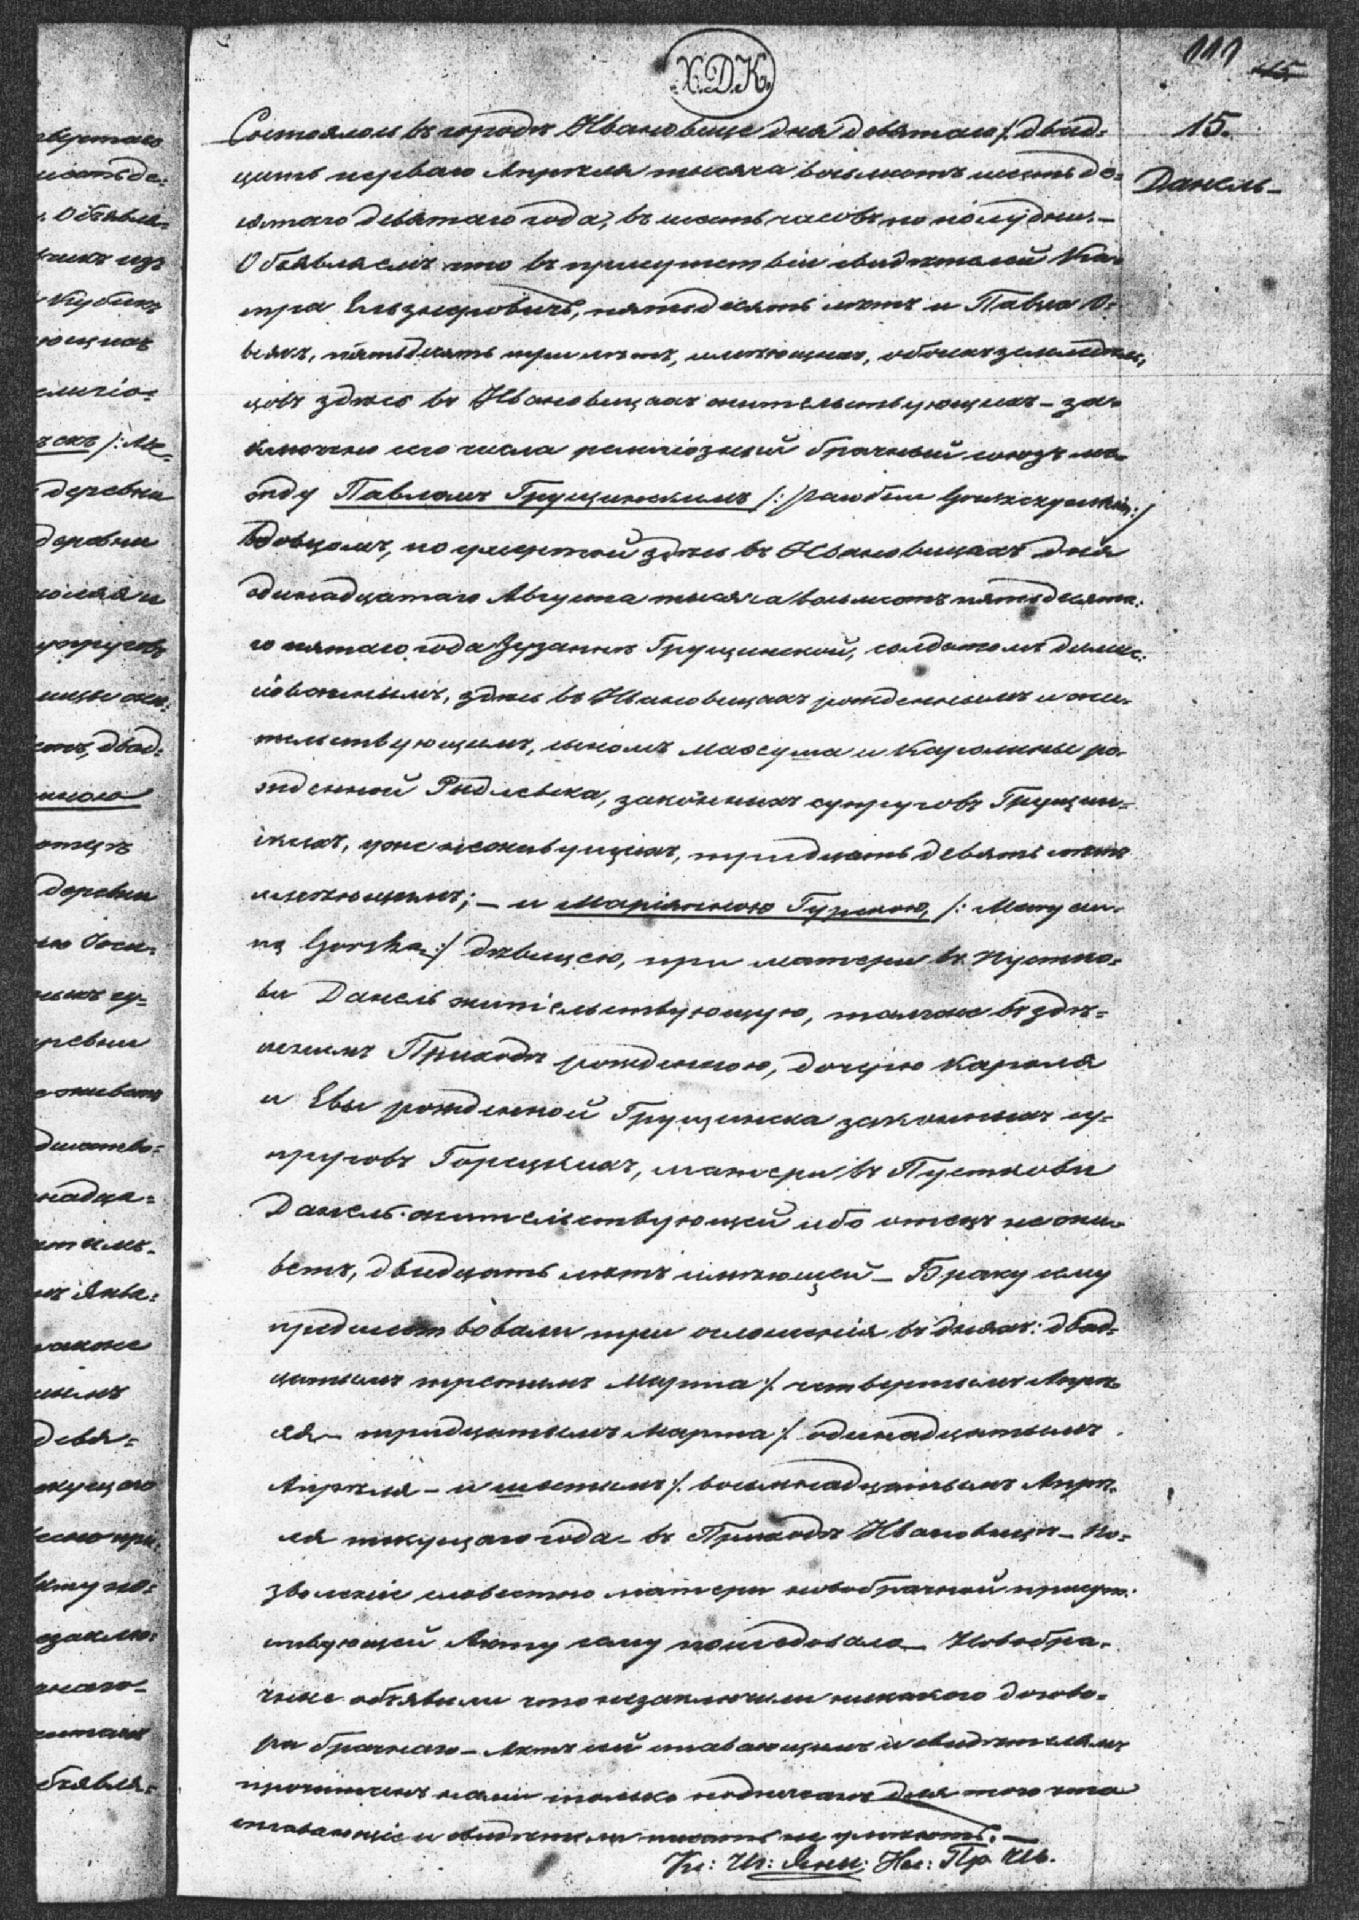 Х.Д.К.
111
15
15.
Данель
Состоялось въ городѣ Ивановице дня девятаго /: двад-
цать перваго Апрѣля тысяча восьмсотъ шестьде-
сятаго девятаго года, въ шесть часовъ по полудни. –
Объявляемъ что въ присутствіи свидѣтелей
пятьдесятъ лѣтъ и Павла
пятьдесятъ три лѣтъ, имѣющихъ, обоихъ земледѣль-
цовъ здѣсь въ Ивановицахъ жительствующихъ – за-
ключено сего числа религіозный брачный союзъ ме-
жду Павломъ Грущинскимъ /:
Вдовцомъ, по умершой здѣсь въ Ивановицахъ дня
одинадцатаго Августа тысяча восьмсотъ пятьдесята-
го пятаго года Зузаннѣ Грущинской, солдатомъ
здѣсь въ Ивановицахъ рожденнымъ и жи-
тельствующимъ, сыномъ и Каролины ро-
жденной законныхъ супруговъ Грущин-
скихъ, уже нежившихъ, тридцать девять лѣтъ
имѣющимъ; – и Маріанною Гурскою, /: Maryan-
ną Gorską :/ дѣвицею, при матери въ Пустко-
ви Данель жительствующую, также въ здѣ-
шнемъ Приходѣ рожденною, дочерю Кароля
и Евы рожденной Грущинска законныхъ су-
пруговъ матери въ Пусткови
Данель жительствующей ибо отецъ не жи-
ветъ, двадцать лѣтъ имѣющей – Браку сему
предшествовали три оглашенія въ дняхъ: двад-
цатымъ третьимъ Марта /: четвертымъ Апрѣ-
ля – тридцатымъ Марта /: одинадцатымъ
Апрѣля – и шестымъ /: восьмнадцатымъ Апрѣ-
ля текущаго года – въ Приходѣ Ивановице – По-
зволеніе словестно матери новобрачной присут-
ствующей Акту сему послѣдовало – Новобра-
чные объявили что незаключили никакого догово-
ра брачнаго – Актъ сей и свидѣтелямъ
прочитанъ нами только подписанъ для того что
и свидѣтели писать не умѣютъ. –